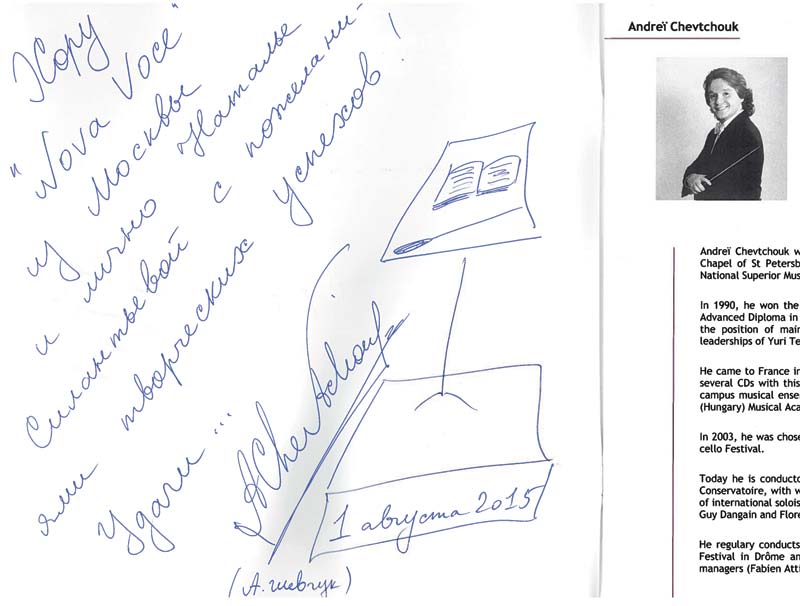 Хору
"Nova Voce"
из Москвы
и лично Наталье
Силантьевой с пожелани-
ями творческих успехов!
Удачи...
AChevtchouk
(А. Шевчук)
1 августа 2015
Andreï Chevtchouk
Andreï Chevtchouk w
Chapel of St Petersb
National Superior Mus
In 1990, he won the
Advanced Diploma in
the position of main
leaderships of Yuri Te
He came to France in
several CDs with this
campus musical ense
(Hungary) Musical Aca
In 2003, he was chose
cello Festival.
Today he is conducto
Conservatoire, with w
of international solois
Guy Dangain and Flore
He regulary conducts
Festival in Drôme an
managers (Fabien Atti